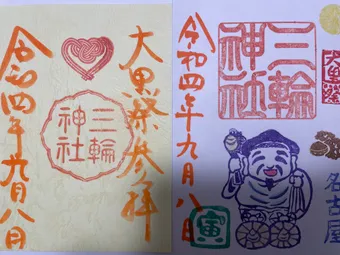 大黒祭参拝
三輪
神社
令和四年九月八日
三輪
神社
大黒祭
令和四年九月八日
寅
名古屋